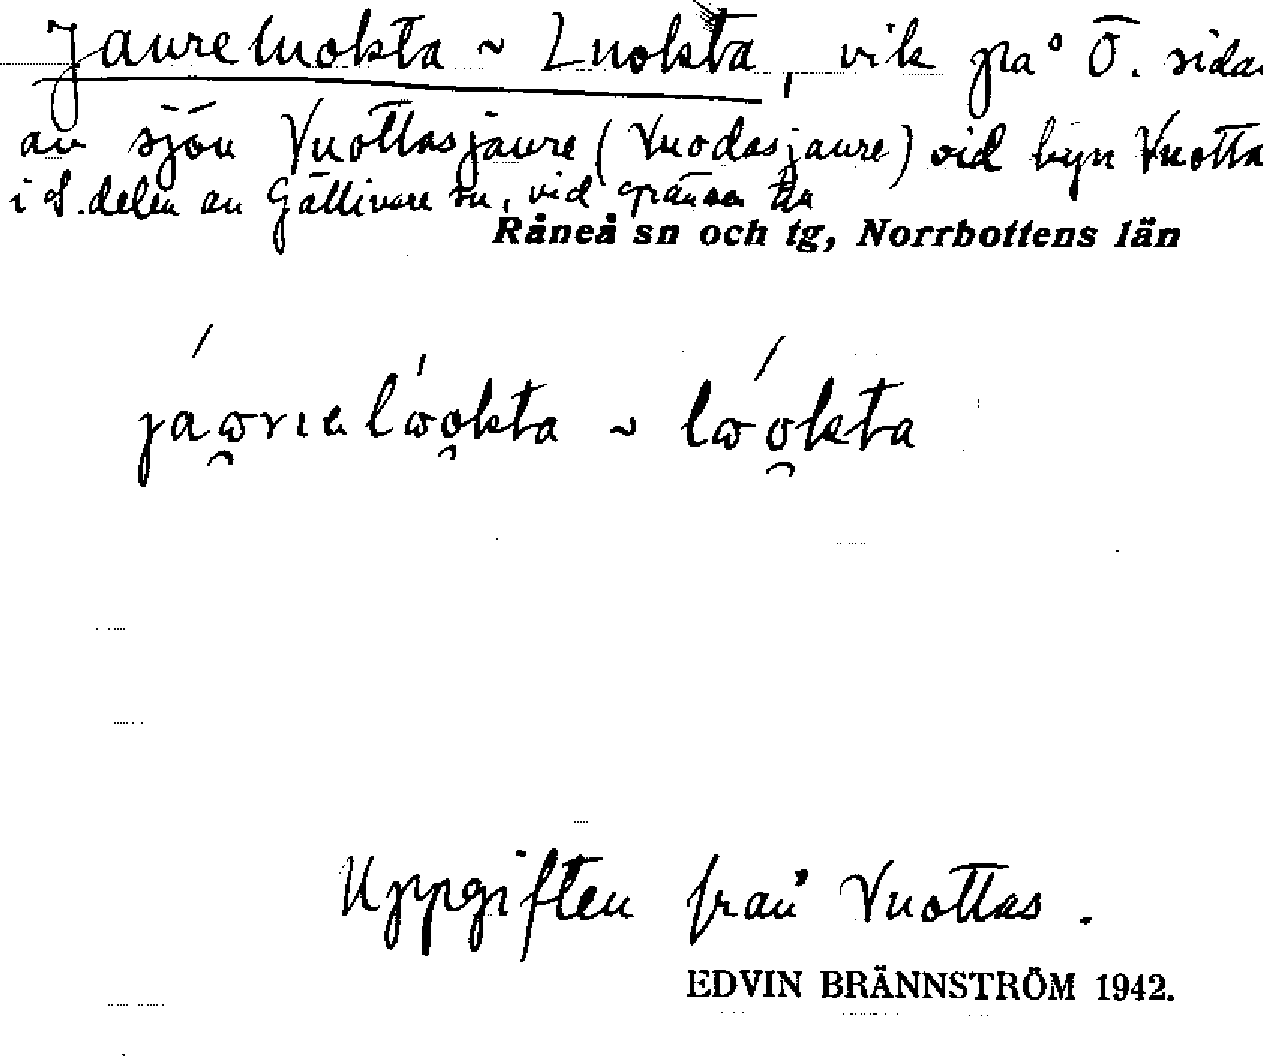 Jaureluokta ~ Luokta, vik på Ö. sidan
av sjön Vuottasjaure (Vuodasjaure) vid byn Vuottas
i S. delen av Gällivare sn, vid gränsen till
Råneå sn och tg, Norrbottens län
~
Uppgiften från Vuottas.
EDVIN BRÄNNSTRÖM 1942.